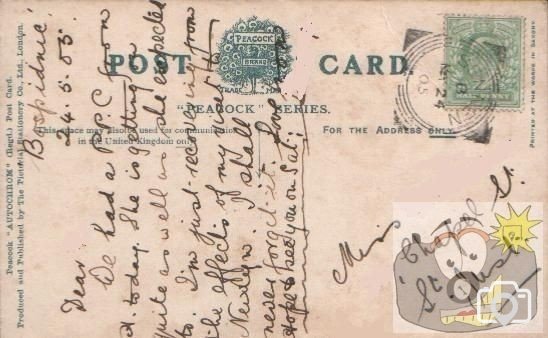 POST CARD.
PEACOCK
BRAND
TRADE MARK
"PEACOCK" SERIES.
This space may also be used for communication
in the United Kingdom only.
FOR THE ADDRESS ONLY.
Peacock "AUTOCHROM" (Regd.) Post Card.
Produced and Published by The Pictorial Stationery Co., Ltd., London.
PRINTED AT THE WORKS IN SAXONY.
24.5.05.
Dear
We had a P.P.C. from
A. today. She is getting on
quite as well as she expected
to. I'm just recovering from
the effects of my visit to
Newlyn. I shall
never forget it. Love
Hope to see you on Sat:
MY 24
05
Chapel St.
St. Just